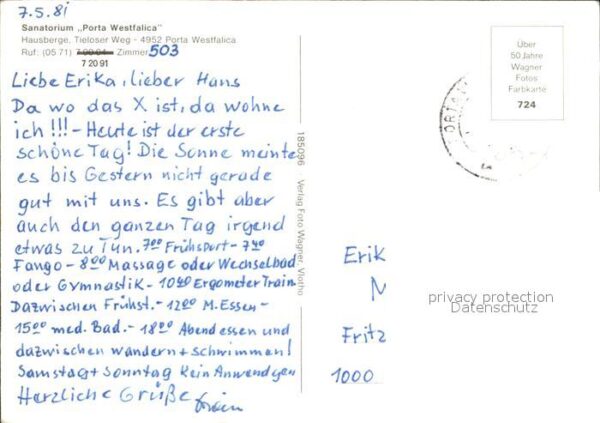 7.5.81
Sanatorium „Porta Westfalica"
Hausberge, Tieloser Weg - 4952 Porta Westfalica
Ruf: (05 71) Zimmer 503
7 20 91
Liebe Erika, lieber Hans
Da wo das X ist, da wohne
ich!!! - Heute ist der erste
schöne Tag! Die Sonne meinte
es bis Gestern nicht gerade
gut mit uns. Es gibt aber
auch den ganzen Tag irgend
etwas zu Tun. 7⁰⁰ Frühsport - 7⁴⁰
Fango - 8⁰⁰ Massage oder Wechselbad
oder Gymnastik - 10⁴⁰ Ergometer Train.
Dazwischen Frühst. - 12⁰⁰ M. Essen -
15⁰⁰ med. Bad. - 18⁰⁰ Abendessen und
dazwischen wandern + schwimmen!
Samstag + Sonntag kein Anwendgen
Herzliche Grüße
185096 Verlag Foto Wagner, Vlotho
Über
50 Jahre
Wagner
Fotos
Farbkarte
724
Erik
M
Fritz
1000
privacy protection
Datenschutz